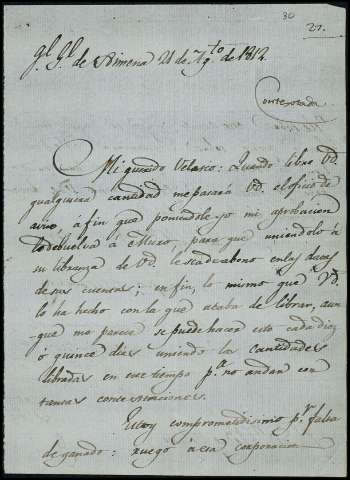 30
21.
Ql. Gl. de Ximena 21 de Ag.to de 1812.
Contestada
Mi querido Velasco: Quando libre Vd.
qualquiera cantidad me pasará Vd. el oficio de
aviso, á fin que poniendole yo mi aprobacion
lo debuelva á Muro, para que uniendolo á
su libranza de Vd. le sea de abono en la data
de sus cuentas; en fin, lo mismo que Vd.
lo ha hecho con la que acaba de librar, aun
que me parece se puede hacer esto cada diez
ó quince dias uniendo las cantidades
libradas en ese tiempo p.a no andar con
tantas contestaciones.
Estoy comprometidisimo p.r falta
de ganado: ruego á esa corporacion